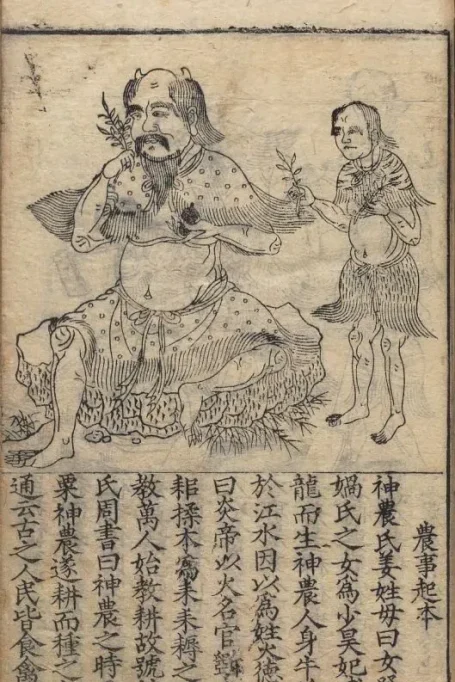 農事起本
神農氏姜姓母曰女
媧氏之女爲少昊妃
龍而生神農人身牛
於江水因以爲姓火德
曰炎帝以火名官
耜揉木爲耒耒耨之
教萬人始教耕故號
氏周書曰神農之時
粟神農遂耕而種之
通云古之人民皆食禽